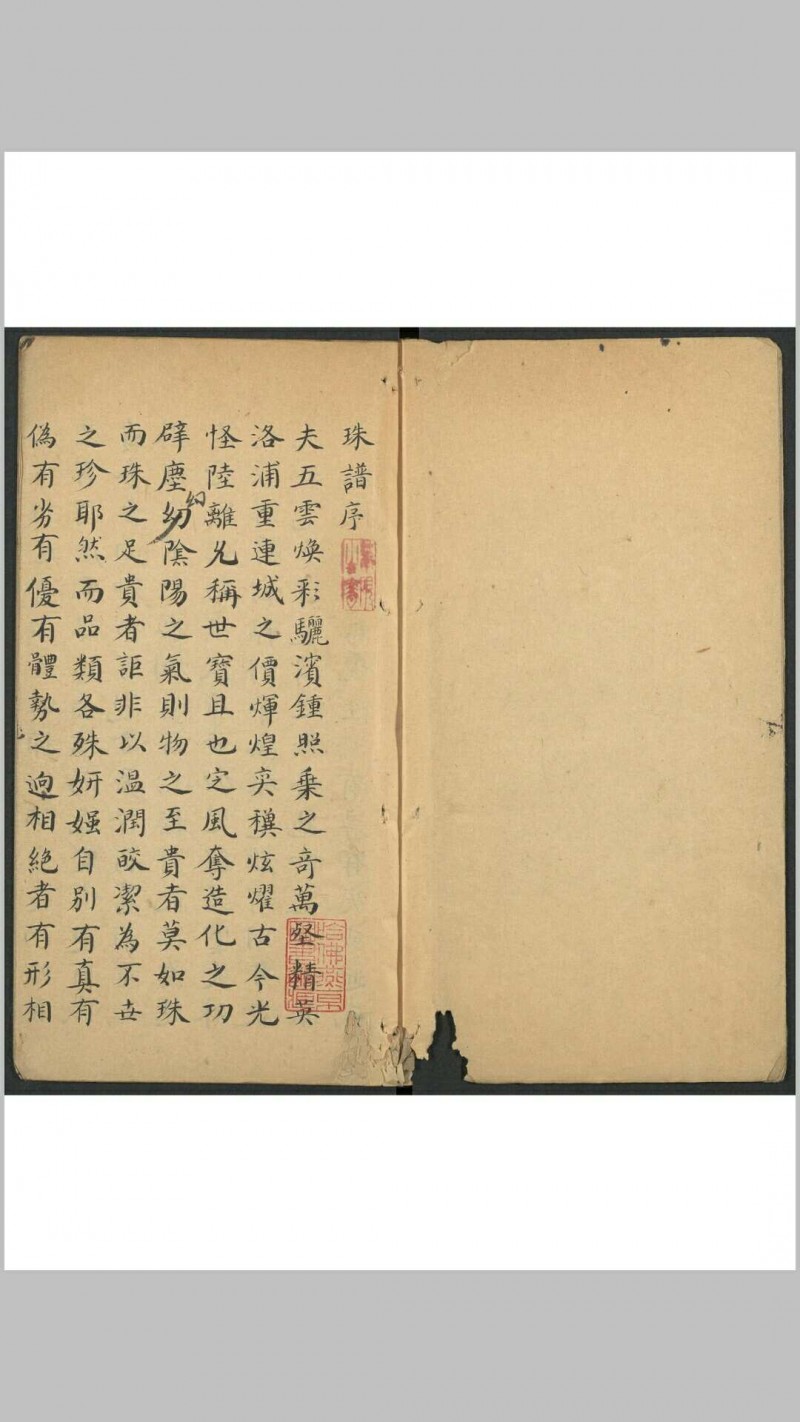 珠譜序
夫五雲煥彩驪濱鍾照乗之竒萬壑精英
洛浦重連城之價煇煌奕禩炫耀古今光
怪陸離允稱世寶且也定風奪造化之功
辟塵陰陽之氣則物之至貴者莫如珠
而珠之足貴者詎非以温潤皎潔為不世
之珍耶然而品類各殊妍媸自别有真有
偽有劣有優有體勢之逈相絶者有形相
哈佛燕京